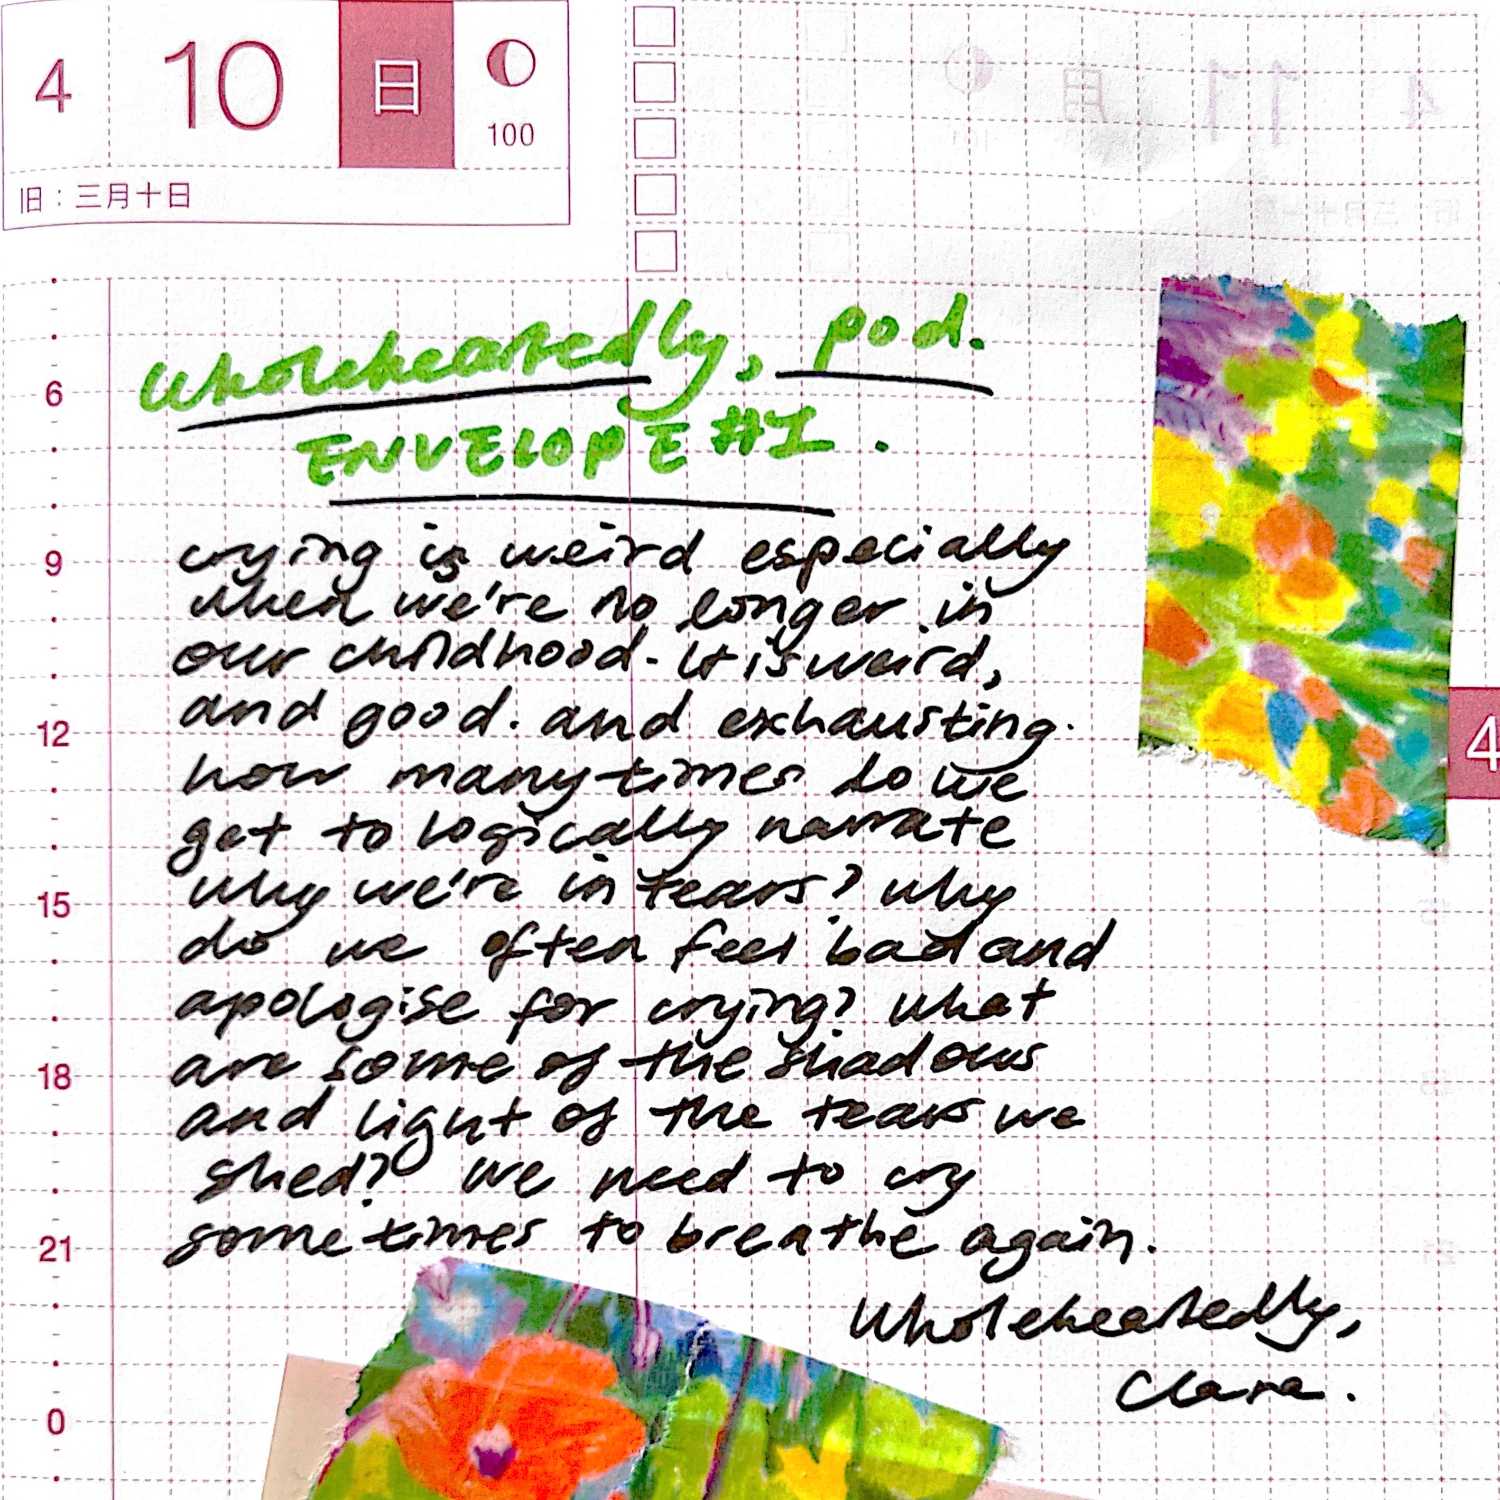 4 10 日
100
旧：三月十日
Wholeheartedly, pod.
ENVELOPE #1.
crying is weird especially
when we're no longer in
our childhood. It is weird,
and good. and exhausting.
how many times do we
get to logically narrate
why we're in tears? why
do we often feel bad and
apologise for crying? what
are some of the shadows
and light of the tears we
shed? we need to cry
sometimes to breathe again.
Wholeheartedly,
Clara.
6
9
12
15
18
21
0
4